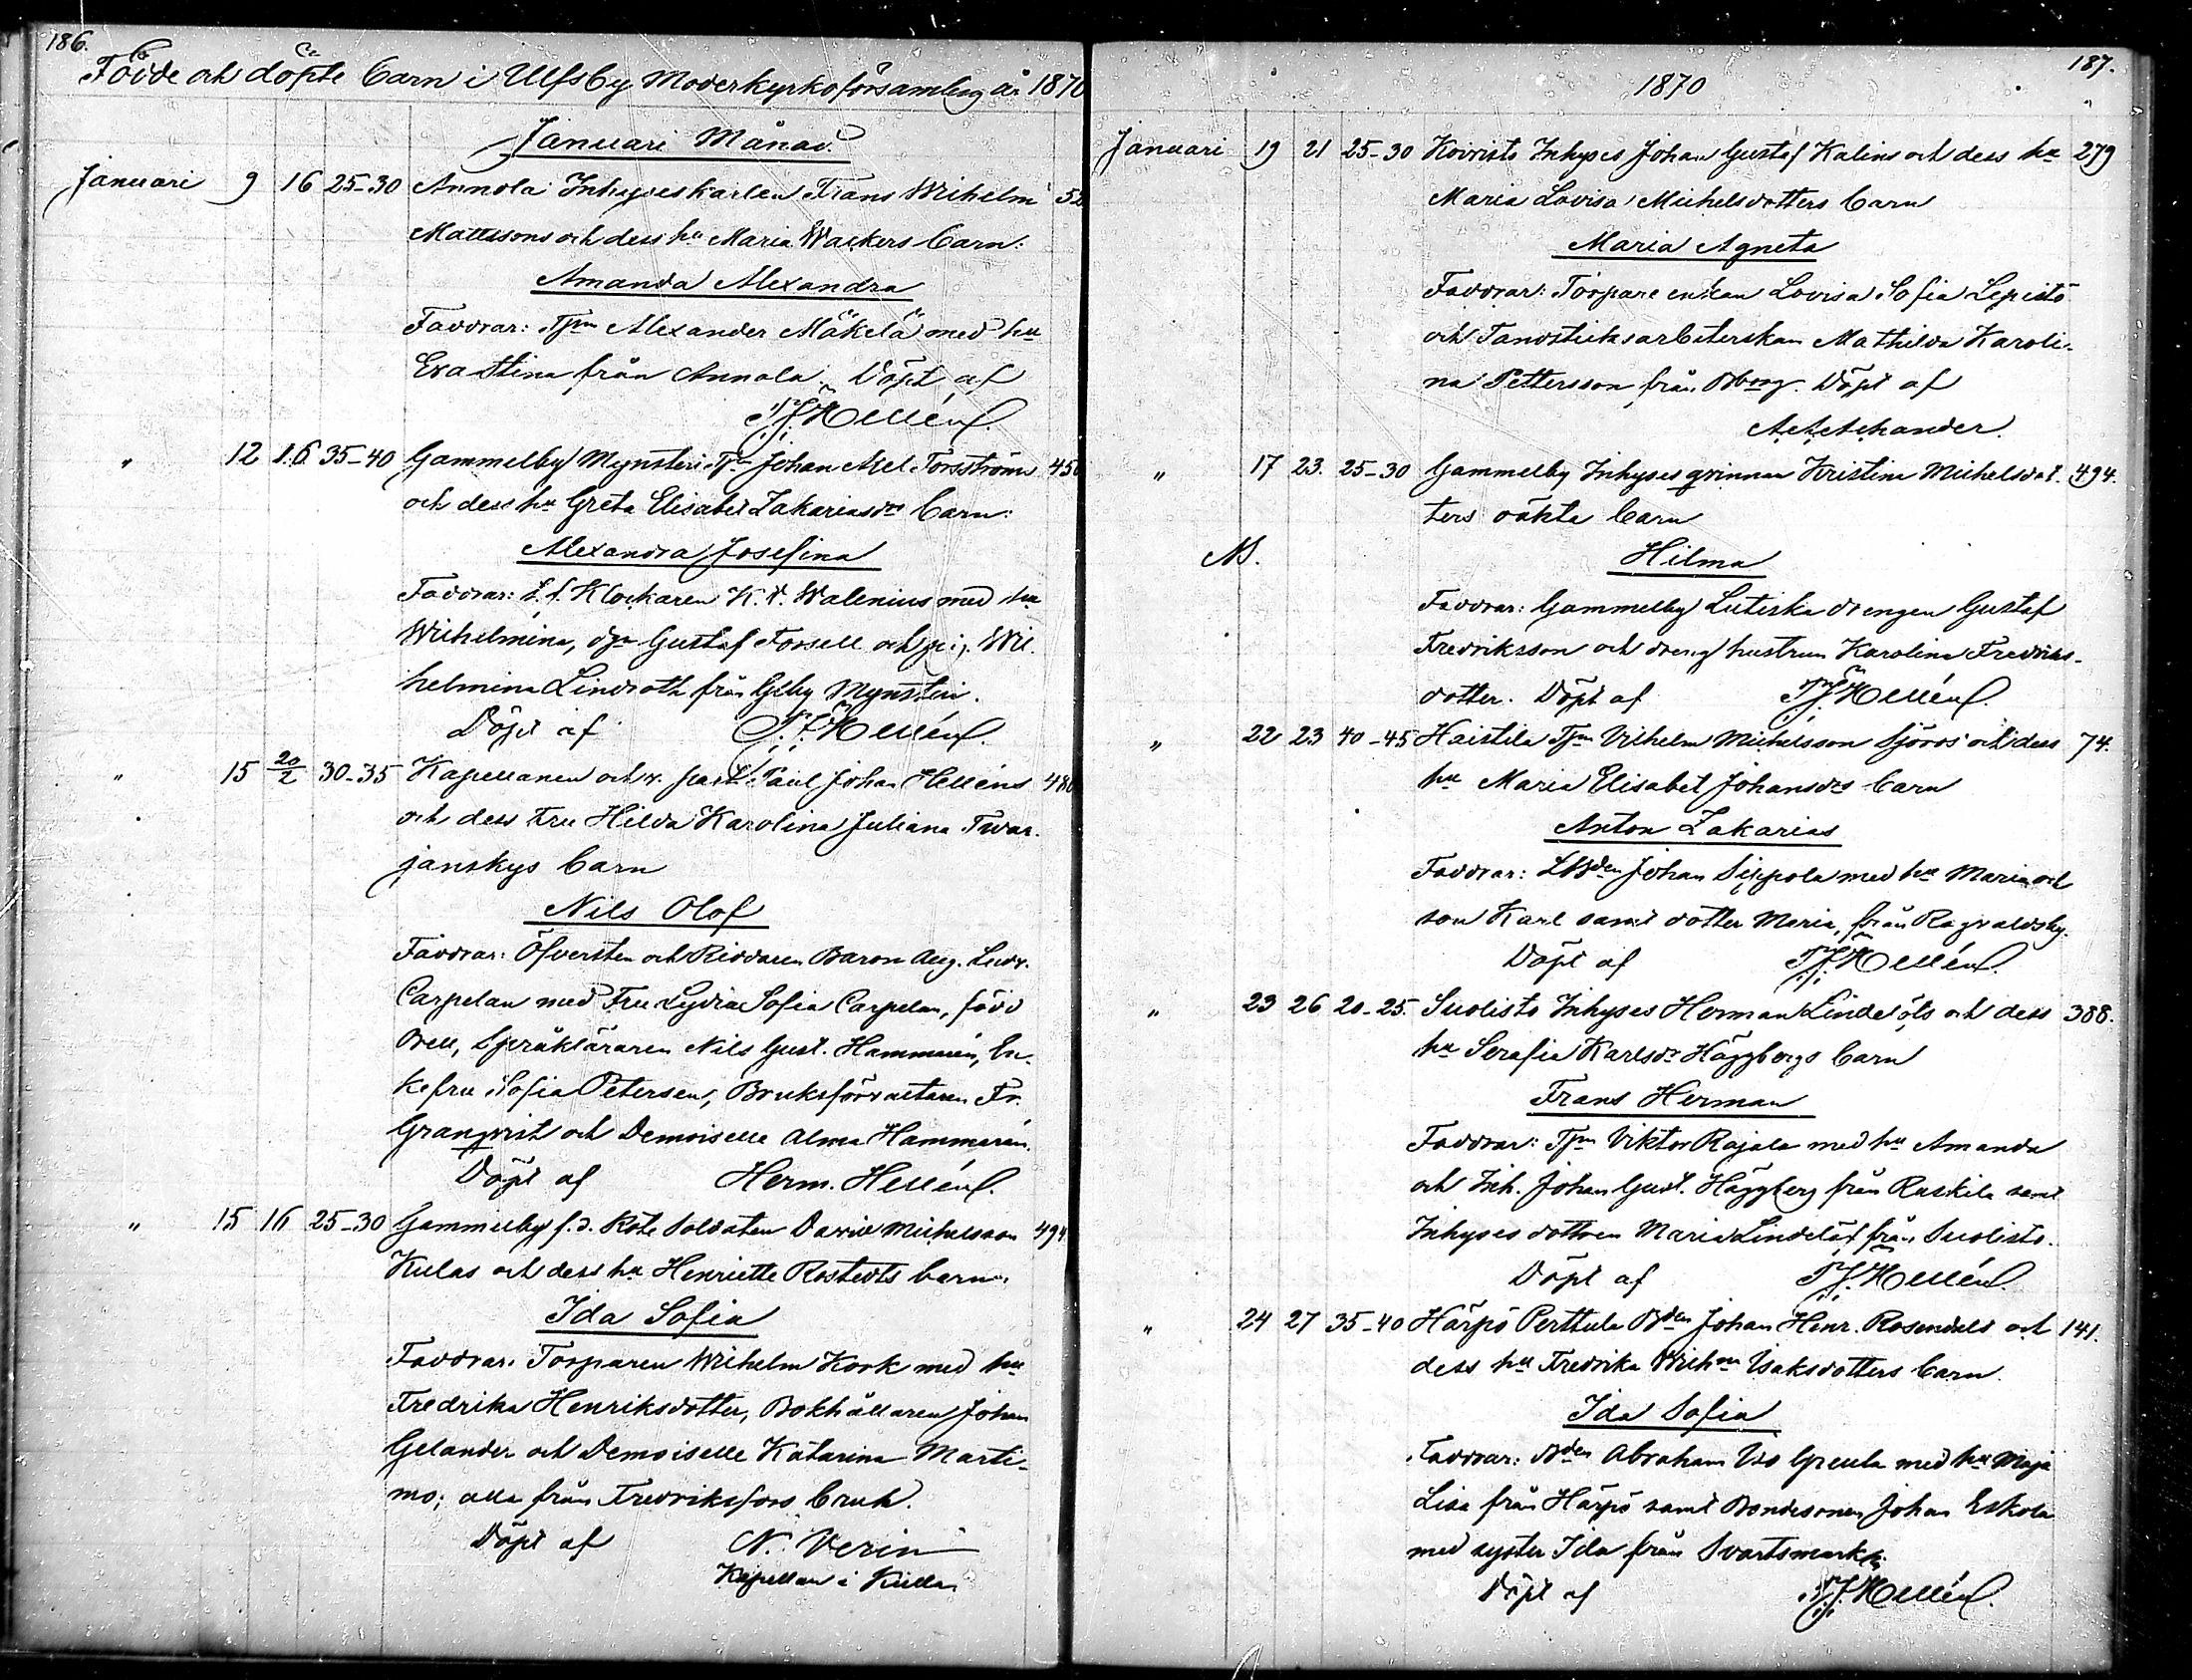 186.
Födde och döpte barn i Ulfsby Moderkyrkoförsamling år 1870
Januari Månad.
Januari 9 16 25-30 Annola Inhyseskarlen Frans Wilhelm 52
Mattssons och dess hu Maria Wackers barn:
Amanda Alexandra
Faddrar: Tjm Alexander Mäkelä med hu
Eva Stina från Annola. Döpt af
P.J. Hellén.
" 12 16 35-40 Gammelby Mynsteri Tjm Johan Axel Forsströms 450
och dess hu Greta Elisabet Zakariasdrs barn:
Alexandra Josefina
Faddrar: Klockaren K. W. Walenius med hu
Wilhelmina, Gustaf Forsell och pig. Wil-
helmina Lindroth från Glby Mynsteri.
Döpt af P.J. Hellén.
" 15 20/2 30-35 Kapellanen och v. past. Paul Johan Helléns 480
och dess Fru Hilda Karolina Juliana Twar-
janskys barn
Nils Olof
Faddrar: Öfversten och Riddaren Baron Aug. Ludv.
Carpelan med Fru Lydia Sofia Carpelan, född
Orell, Språkläraren Nils Gust. Hammarén, En-
kefru Sofia Petersen, Bruksförvaltaren Fr.
Granqvist och Demoiselle Alma Hammarén.
Döpt af Herm. Hellén.
" 15 16 25-30 Gammelby f.d. Rote Soldaten David Michelsson 494
Kulas och dess hu Henriette Rostedts barn:
Ida Sofia
Faddrar: Torparen Wilhelm Kork med hu
Fredrika Henriksdotter, Bokhållaren Johan
Gelander och Demoiselle Katarina Marti-
mo; alla från Fredriksfors bruk.
Döpt af N. Verin
Kapellan i Kulla
187.
1870
Januari 19 21 25-30 Koivisto Inhyses Johan Gustaf Kalins och dess hu 279
Maria Lovisa Michelsdotters barn
Maria Agneta
Faddrar: Torpare enkan Lovisa Sofia Lepistö
och Tandsticksarbeterskan Mathilda Karoli-
na Pettersson från Bborg. Döpt af
" 17 23. 25-30 Gammelby Inhysesqvinnan Kristina Michelsdot- 494.
ters oäkta barn
NB.
Hilma
Faddrar: Gammelby Lutiska drengen Gustaf
Fredriksson och dreng hustrun Karolina Fredriks-
dotter. Döpt af P.J. Hellén.
" 22 23 40-45 Haistila Tjm Vilhelm Michelsson Sjöros och dess 74.
hu Maria Elisabet Johansdrs barn
Anton Zakarias
Faddrar: Johan Sippola med hu Maria och
son Karl samt dotter Maria, från Ragvaldsby.
Döpt af P.J. Hellén.
" 23 26 20-25. Suolisto Inhyses Herman Lindelöfs och dess 388.
hu Serafia Karlsdr Häggbergs barn
Frans Herman
Faddrar: Tjm Viktor Rajala med hu Amanda
och Inh. Johan Gust. Häggberg från Raskila samt
Inhyses dottren Maria Lindelöf från Suolisto.
Döpt af P.J. Hellén.
" 24 27 35-40 Härpö Perttula Bden Johan Henr. Rosendals och 141.
dess hu Fredrika Wilhna Isaksdotters barn.
Ida Sofia
Faddrar: Bden Abraham Iso Greula med hu Maja
Lisa från Härpö samt Bondesonen Johan Eskola
med syster Ida från Svartsmark.
Döpt af P.J. Hellén.